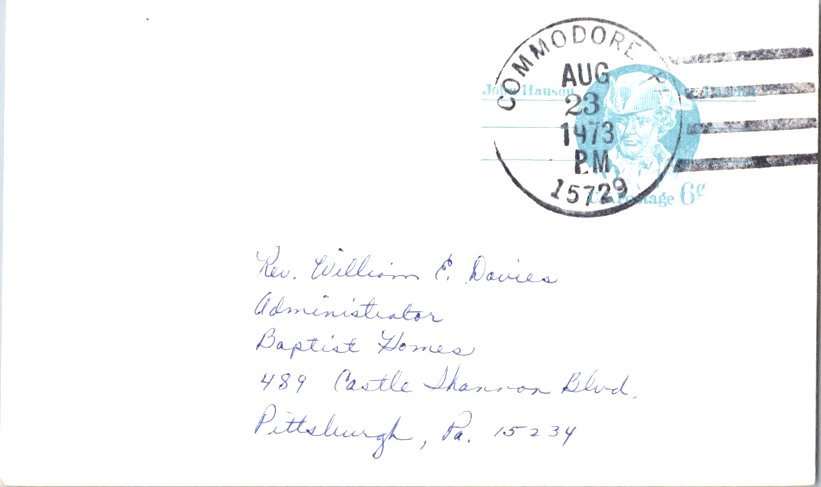 COMMODORE PA
AUG
23
1973
PM
15729
John Hanson
Postage 6¢
Rev. William E. Davies
Administrator
Baptist Homes
489 Castle Shannon Blvd.
Pittsburgh, Pa. 15234